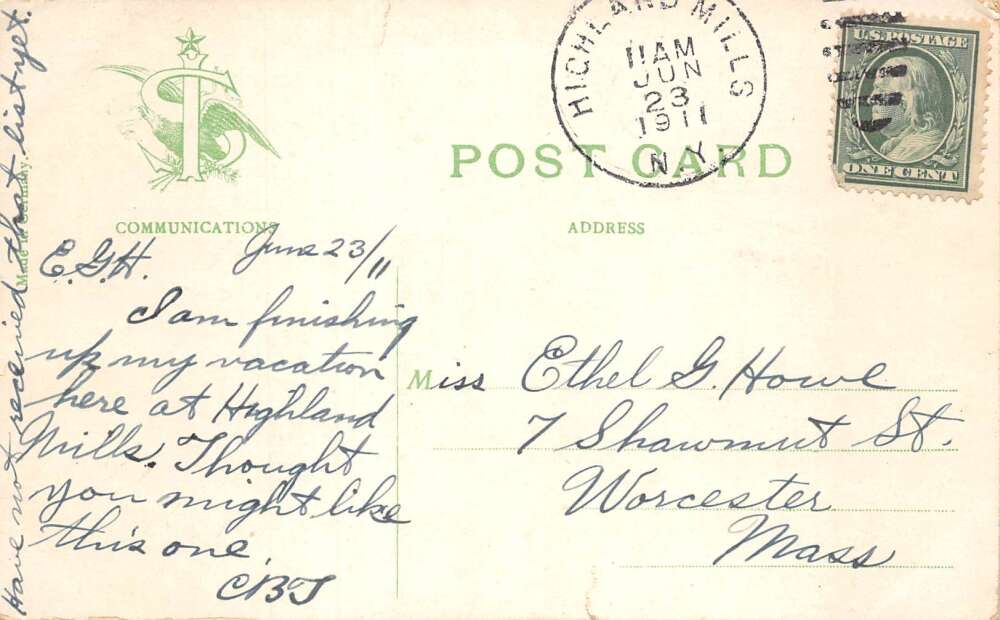 HIGHLAND MILLS
11 AM
JUN
23
1911
N.Y.
U.S. POSTAGE
ONE CENT
POST CARD
COMMUNICATIONS
ADDRESS
Made in Germany.
June 23/11
E.G.H.
I am finishing
up my vacation
here at Highland
Mills. Thought
you might like
this one.
CBT
Have not received that list yet.
Miss Ethel G. Howe
7 Shawmut St.
Worcester
Mass